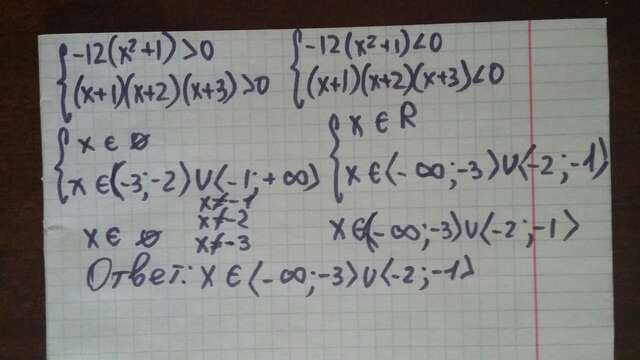 {-12(x²+1)>0
(x+1)(x+2)(x+3)>0
{-12(x²+1)<0
(x+1)(x+2)(x+3)<0
{x∈∅
x∈(-3;-2)∪(-1;+∞)
x≠-1
x≠-2
x≠-3
x∈∅
{x∈R
x∈(-∞;-3)∪(-2;-1)
x∈(-∞;-3)∪(-2;-1)
Ответ: x∈(-∞;-3)∪(-2;-1)